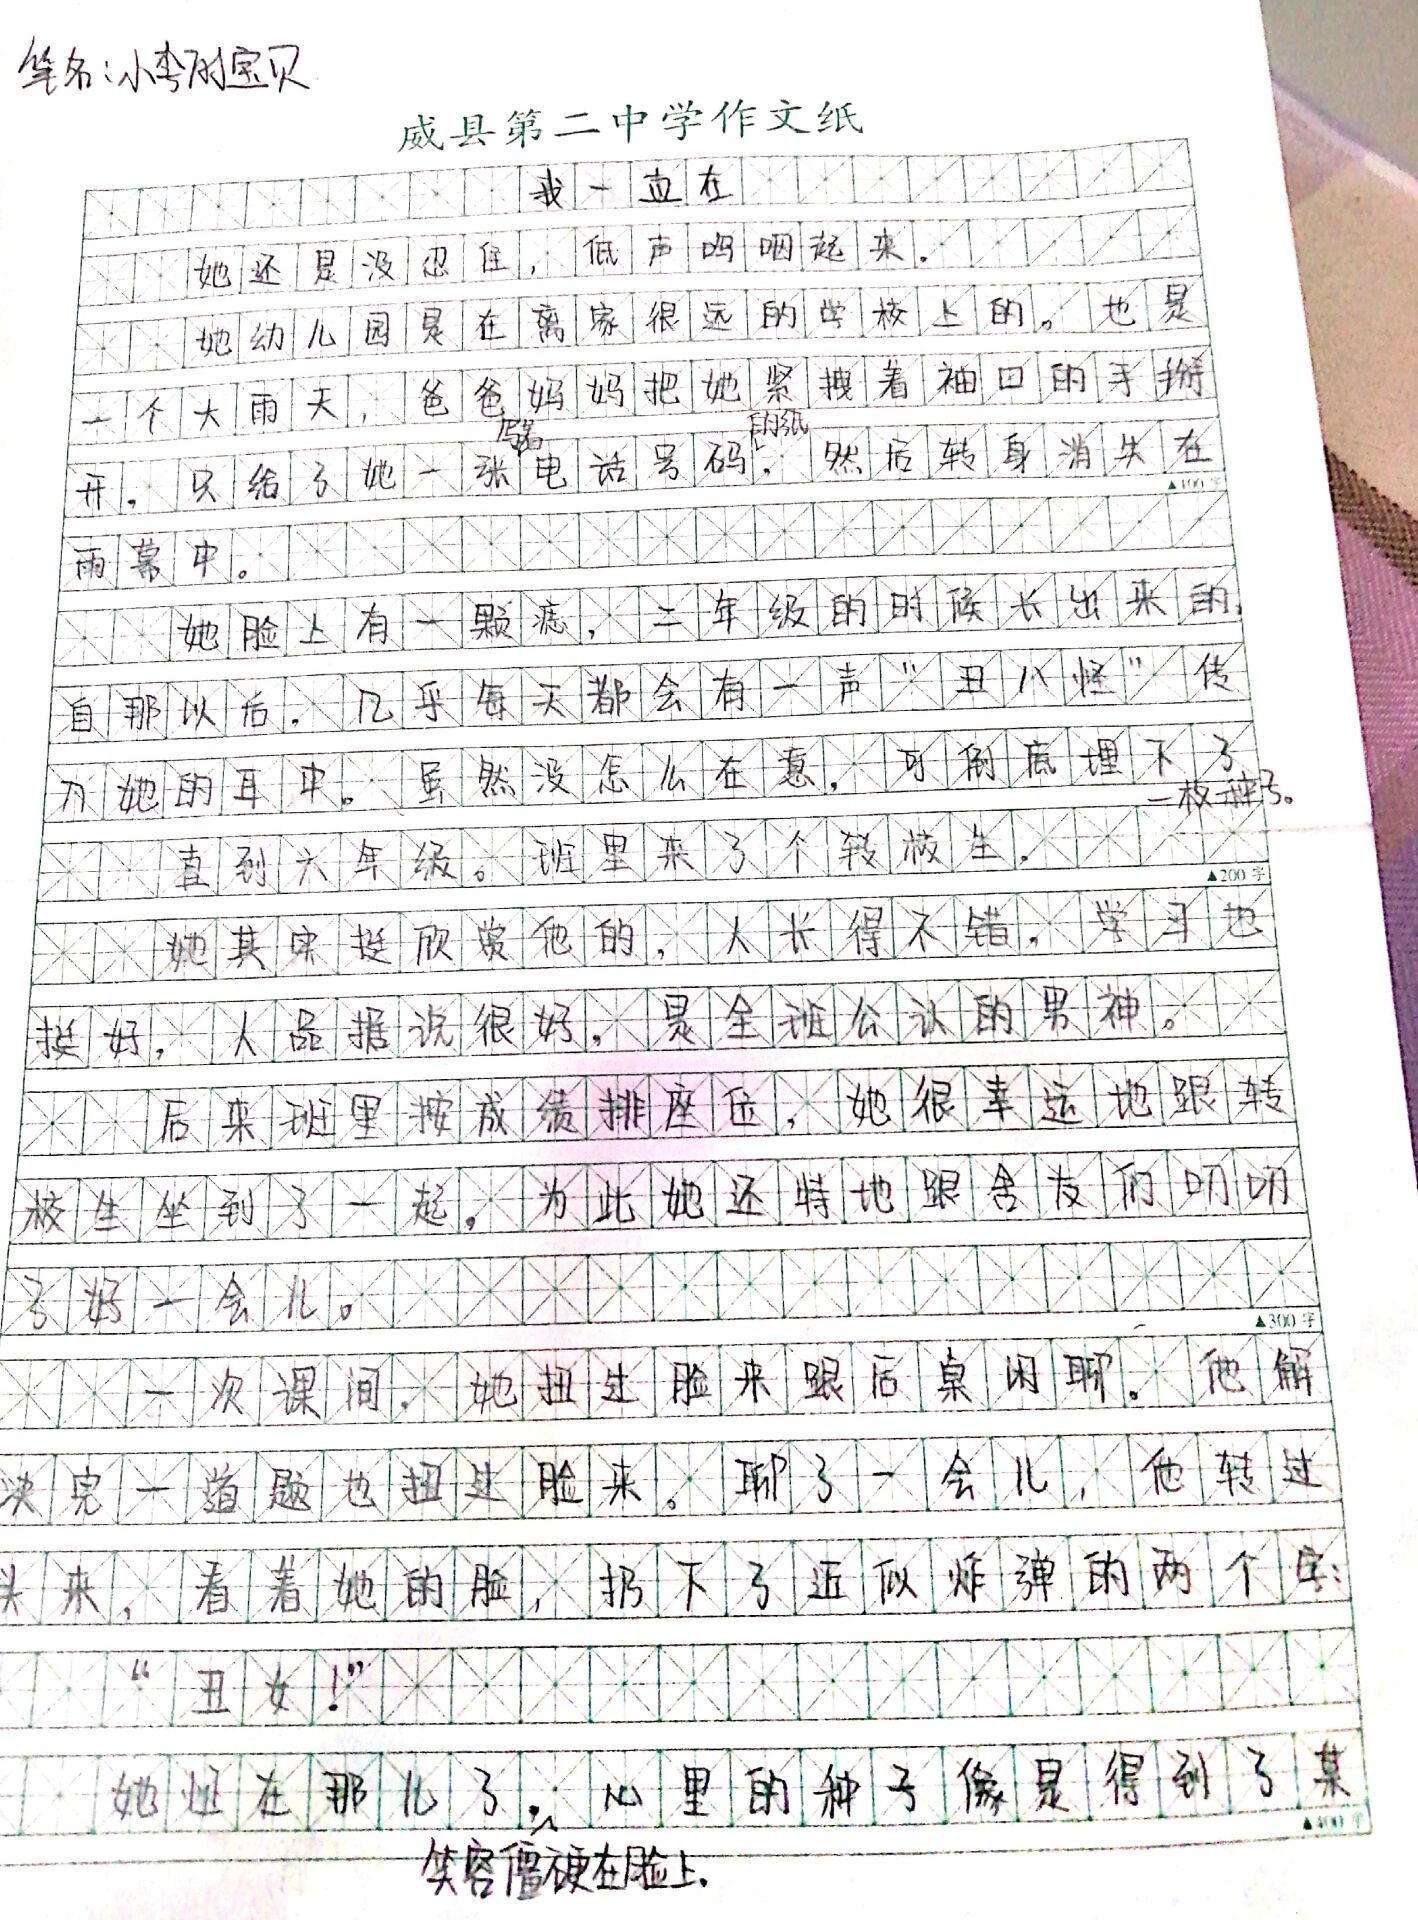 笔名：小李的宝贝
威县第二中学作文纸
我一直在
她还是没忍住，低声呜咽起来。
她幼儿园是在离家很远的学校上的。也是
一个大雨天，爸爸妈妈把她紧拽着袖口的手掰
开。只给了她一张写着电话号码的纸，然后转身消失在
▲100字
雨幕中。
她脸上有一颗痣，二年级的时候长出来的，
自那以后，几乎每天都会有一声“丑八怪”传
入她的耳中。虽然没怎么在意，可到底埋下了
一枚种子。
直到六年级。班里来了个转校生。
▲200字
她其实挺欣赏他的，人长得不错，学习也
挺好，人品据说很好。是全班公认的男神。
后来班里按成绩排座位，她很幸运地跟转
校生坐到了一起。为此她还特地跟舍友们叨叨
了好一会儿。
▲300字
一次课间，她扭过脸来跟后桌闲聊。他解
决完一道题也扭过脸来。聊了一会儿，他转过
头来，看着她的脸，扔下了近似炸弹的两个字：
“丑女！”
她怔在那儿了，心里的种子像是得到了某
▲400字
笑容僵硬在脸上。